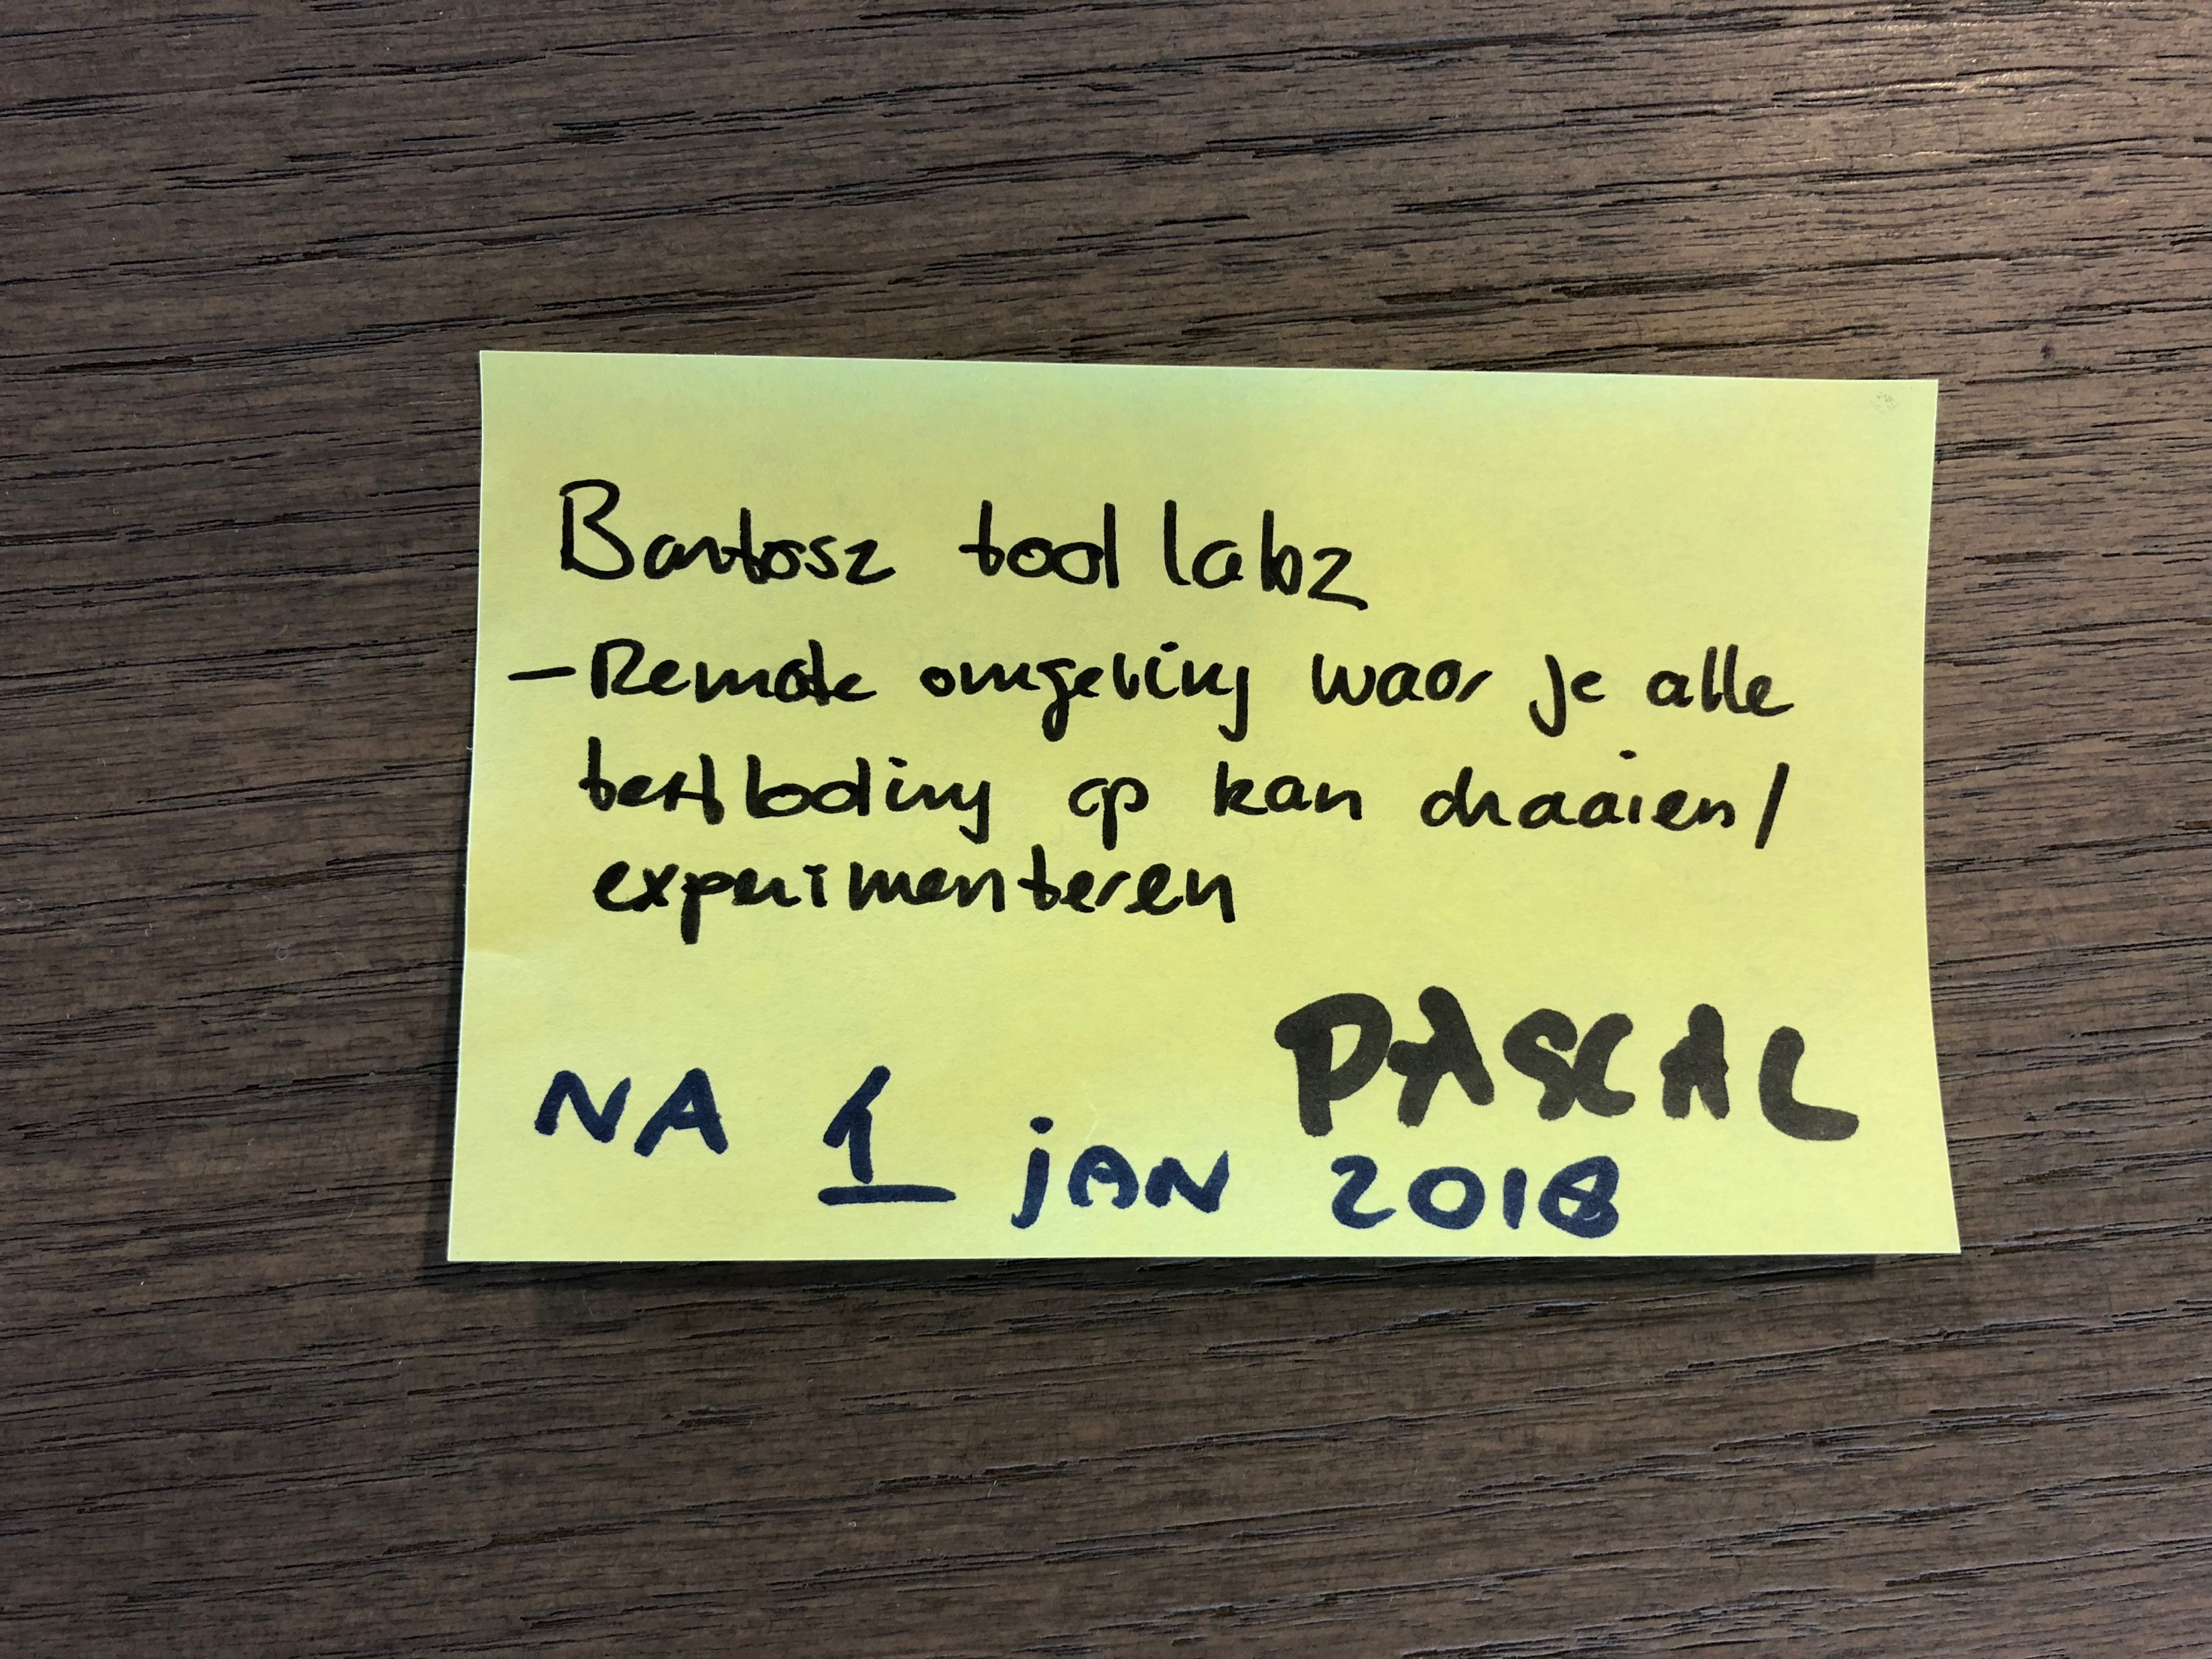 Bartosz tool labz
- Remote omgeving waar je alle
op kan draaien/
experimenteren
PASCAL
NA 1 jAN 2018